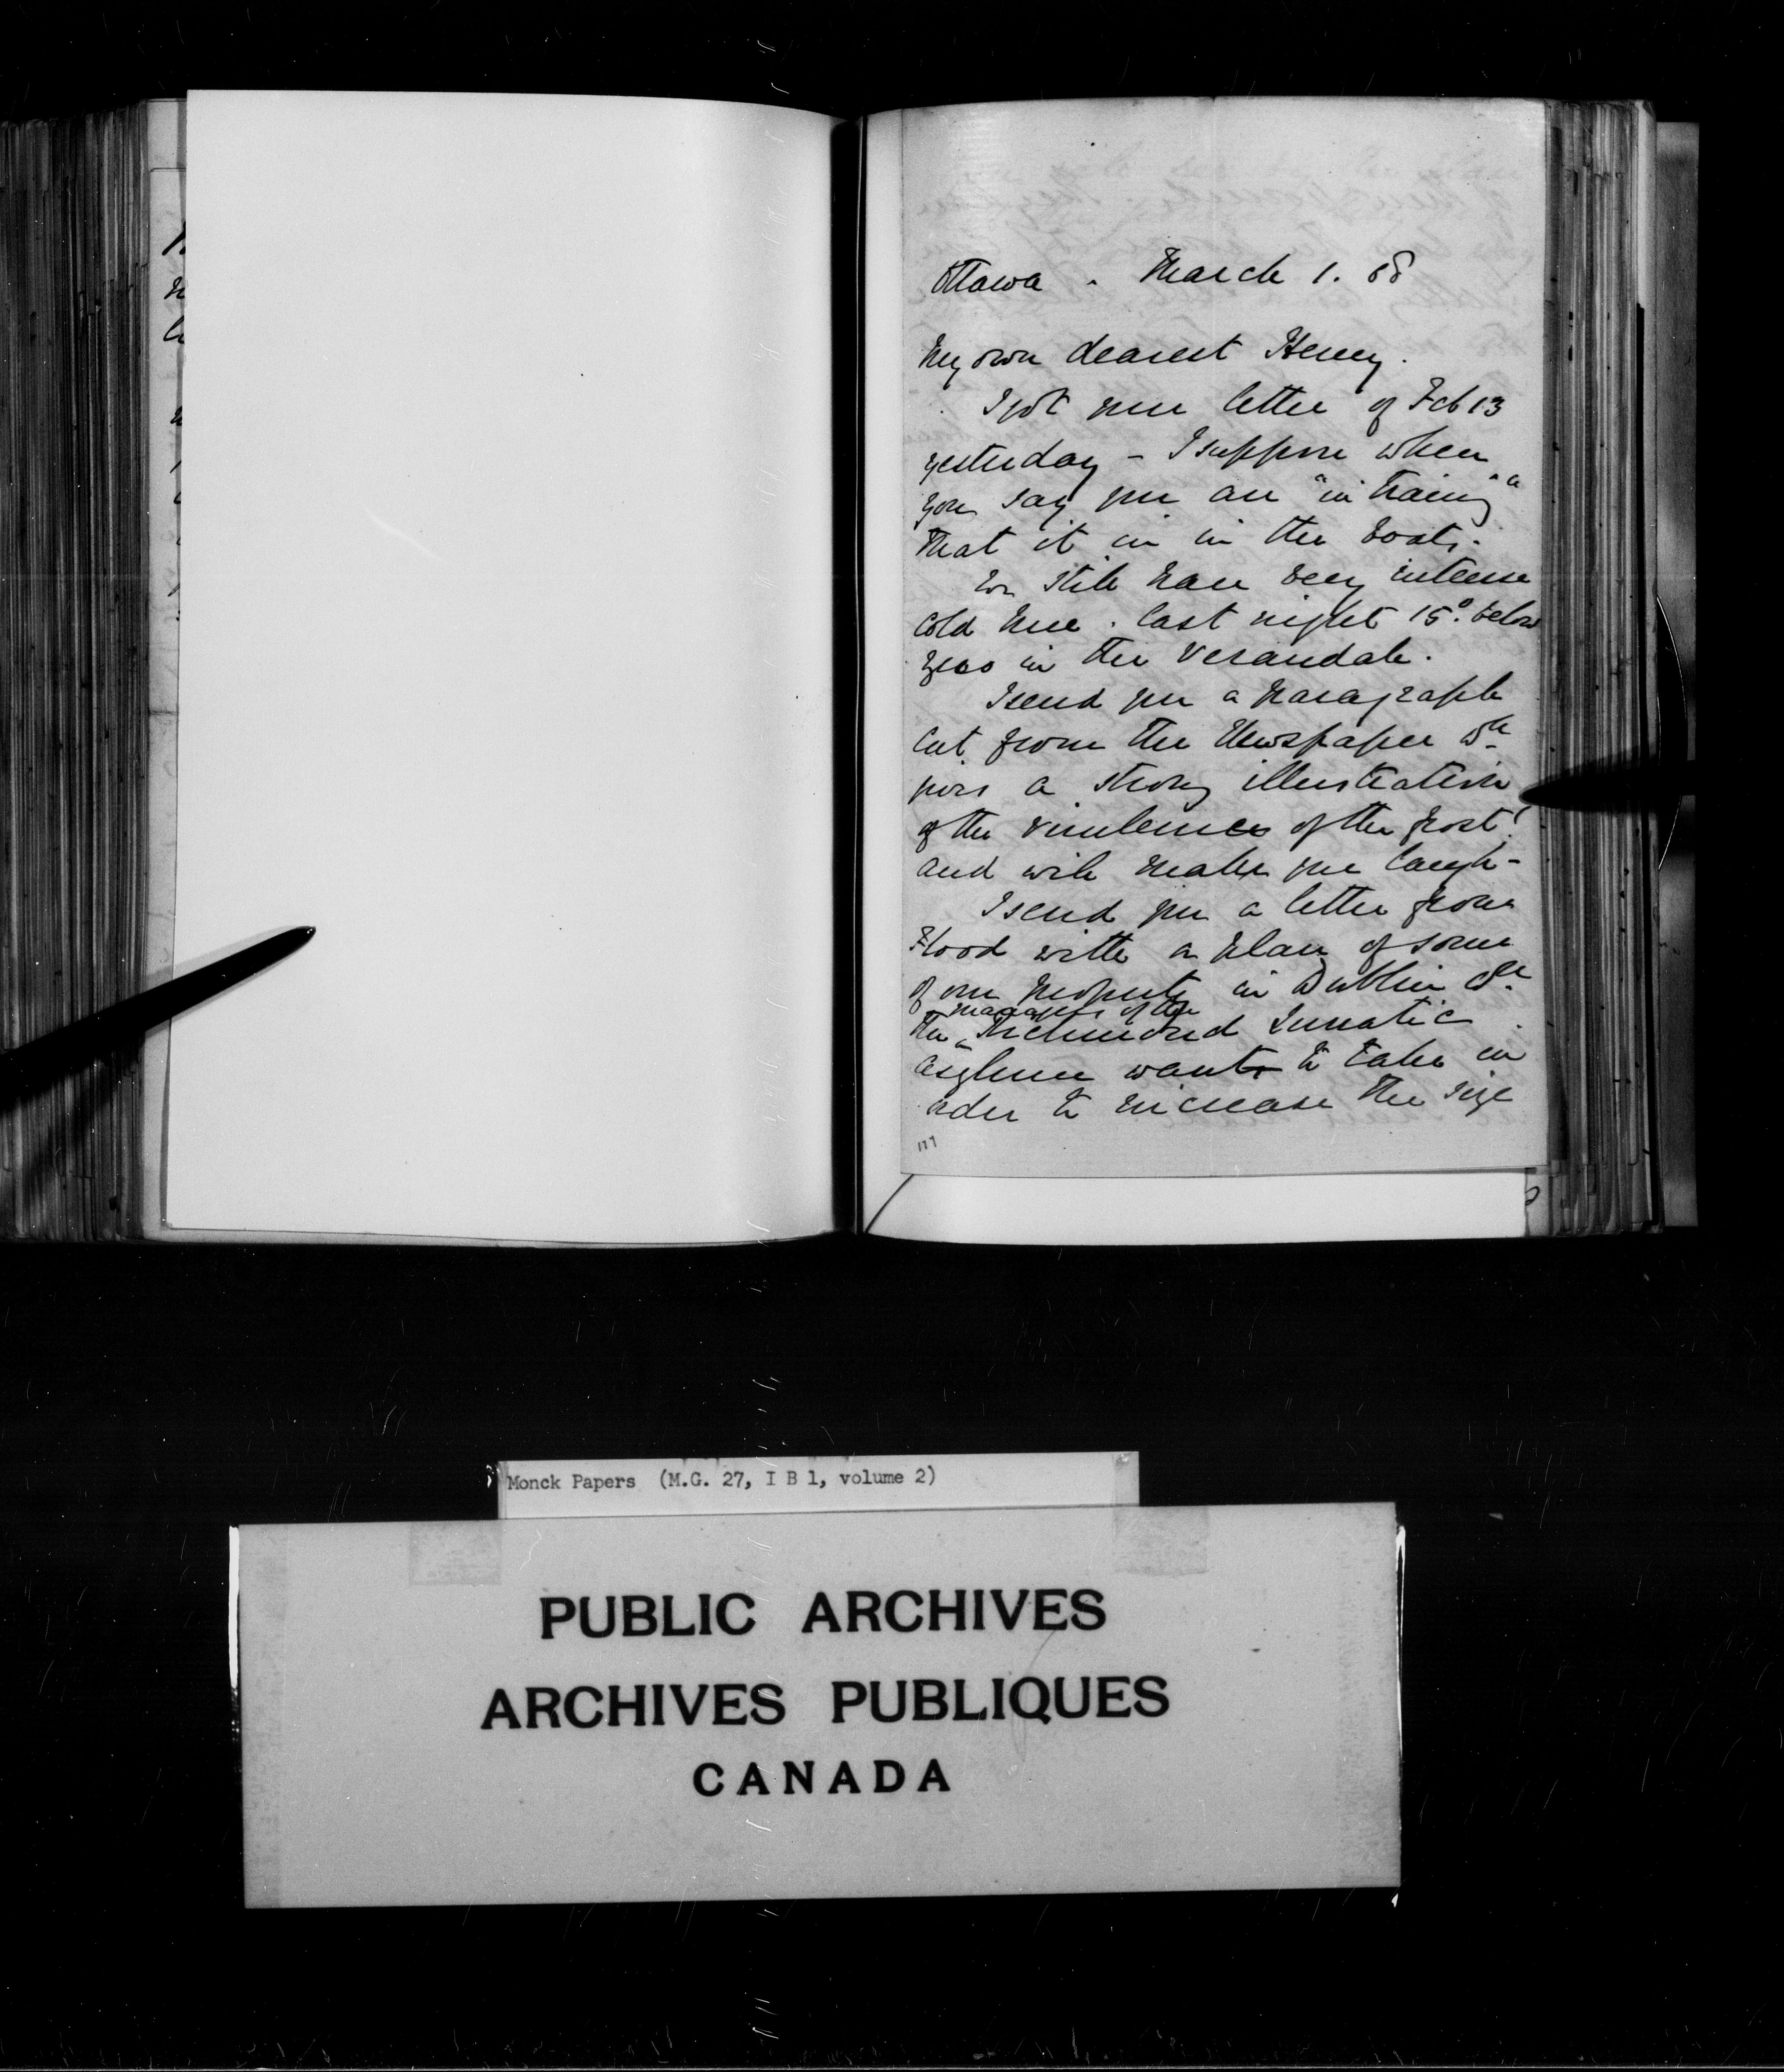 Ottawa . March 1. 68
My own dearest Henry.
I got your letter of Feb 13
yesterday - I suppose when
you say you are "in training"
that it is in the boats.
We still have very intense
cold here . last night 15°. below
zero in the Verandah.
I send you a paragraph
cut from the Newspaper wh
gives a strong illustration
of the virulence of the frost!
and will make you laugh -
I send you a letter from
Flood with a plan of some
of our property in Dublin wh
managers of the
the Richmond Lunatic
Asylum want to take in
order to increase the size
177
Monck Papers (M.G. 27, I B 1, volume 2)
PUBLIC ARCHIVES
ARCHIVES PUBLIQUES
CANADA